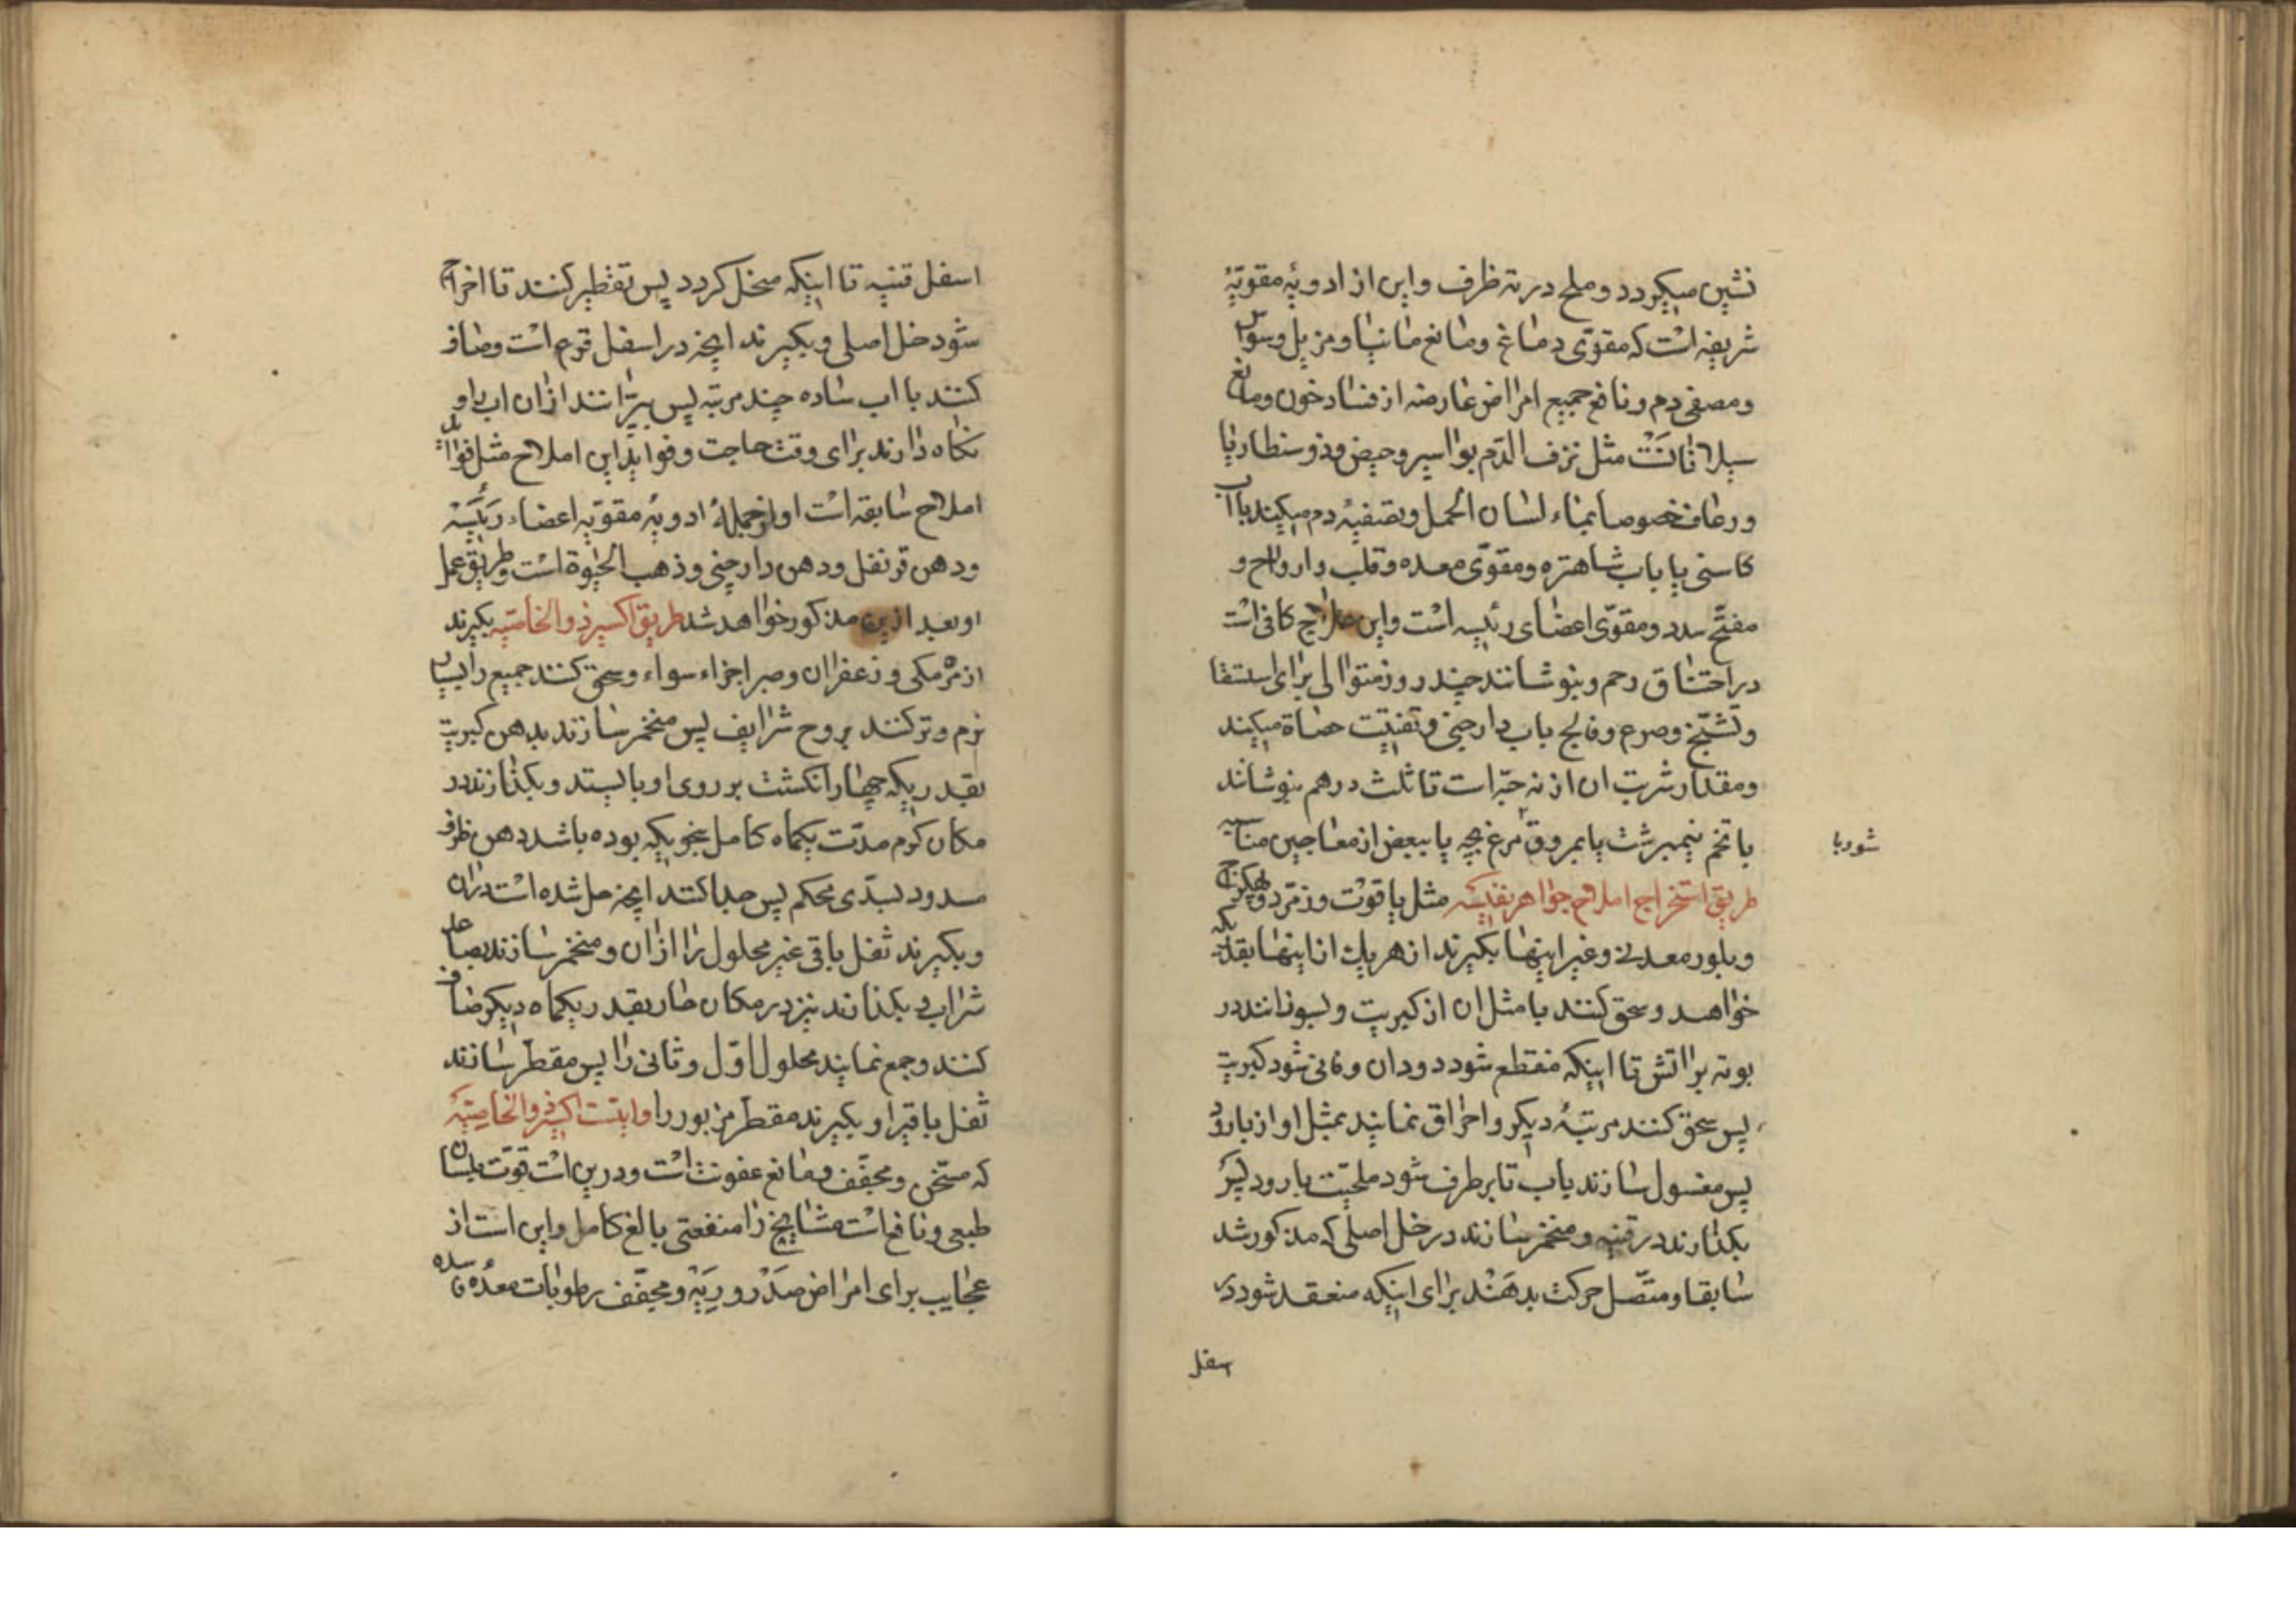 نشین میکردد و ملح در ته ظرف و این از ادویهٔ مقویهٔ
شریفه است که مقوّی دماغ و مانع مانیا و مزیل وسواس
و مصفی دم و نافع جمیع امراض عارضه از فساد خون و مانع
سیلانات است مثل نزف الدم بواسیر و حیض و ذوسنطاریا
و رعاف خصوصا بماء لسان الحمل و تصفیهٔ دم میکند باآب
کاسنی یا باب شاهتره و مقوّی معده و قلب و ارواح و
مفتّح سدد و مقوّی اعضای رئیسه است و این علاج کافی است
در اختناق رحم و بنوشانند چند روز متوالی برای استسقا
و تشنّج و صرع و فالج باب دارچینی و تفتیت حصاة میکند
و مقدار شربت ان از نه حبّه است تا ثلث درهم بنوشانند
با تخم نیمبرشت یا بمروق مرغ بچه یا ببعض از معاجین مناسبه
شوربا
طریق استخراج املاح جواهر نفیسه مثل یاقوت و زمرّد و
و بلور معدنی و غیر اینها بکیرند از هر یک از اینها بقدریکه
خواهد و سحق کنند با مثل ان از کبریت و بسوزانند در
بوته بر اتش تا اینکه منقطع شود دودان و فانی شود کبریت
پس سحق کنند مرتبهٔ دیکر و احراق نمایند بمثل او از بارود
پس مغسول سازند باب تا برطرف شود ملحیّت بارود پس
بکذارند در قنینه و منخمر سازند در خل اصلی که مذکور شد
سابقا و متّصل حرکت بدهند برای اینکه منعقد شود در
اسفل
اسفل قنینه تا اینکه منحل کردد پس تقطیر کنند تا اخراج
شود خل اصلی و بکیرند انچه در اسفل قرع است و صاف
کنند با اب ساده چند مرتبه پس بپرانند ازان اب را و
نکاه دارند برای وقت حاجت و فواید این املاح مثل فواید
املاح سابقه است او از جملهٔ ادویهٔ مقویّه اعضاء رئیسه
و دهن قرنفل و دهن دارچینی و ذهب الحیوة است و طریق عمل
او بعد ازین مذکور خواهد شد طریق اکسیر ذو الخاصیّه بکیرند
از مرّ مکی و زعفران و صبر اجزاء سواء و سحق کنند جمیع را بسیار
نرم و تر کنند بروح شراب پس منخمر سازند بدهن کبریت
بقدریکه چهار انکشت بر روی او بایستد و بکذارند در
مکان کرم مدّت یکماه کامل بنحویکه بوده باشد دهن ظرف
مسدود بسدّی محکم پس جدا کنند انچه حل شده است دران
و بکیرند ثفل باقی غیر محلول را ازان و منخمر سازند بصاعد
شراب و بکذارند نیز در مکان حار بقدر یکماه دیکر صاف
کنند و جمع نمایند محلول اوّل و ثانی را پس مقطّر سازند
ثفل باقیرا و بکیرند مقطّر مزبور را و اینست اکسیر ذو الخاصیّهٔ
که مسخّن و مجفّف و مانع عفونت است و درین است قوّت بلسان
طبیعی و نافع است مشایخ را منفعتی بالغ کامل و این است از
عجایب برای امراض صدر و ریه و مجفّف رطوبات معده